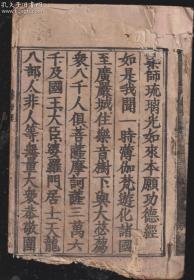 藥師琉璃光如來本願功德經
如是我聞一時薄伽梵遊化諸國
至廣嚴城住樂音樹下與大苾芻
衆八千人俱菩薩摩訶薩三萬六
千及國王大臣婆羅門居士天龍
八部人非人等無量大衆恭敬圍